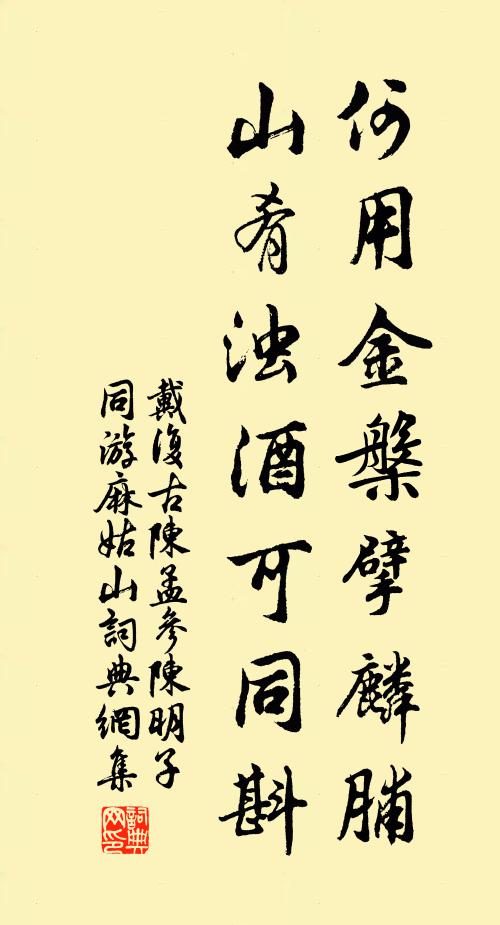 何用金槃擘麟脯
山肴浊酒可同斟
戴復古陳孟參陳明子
同游麻姑山詞典網集
詞典
网印